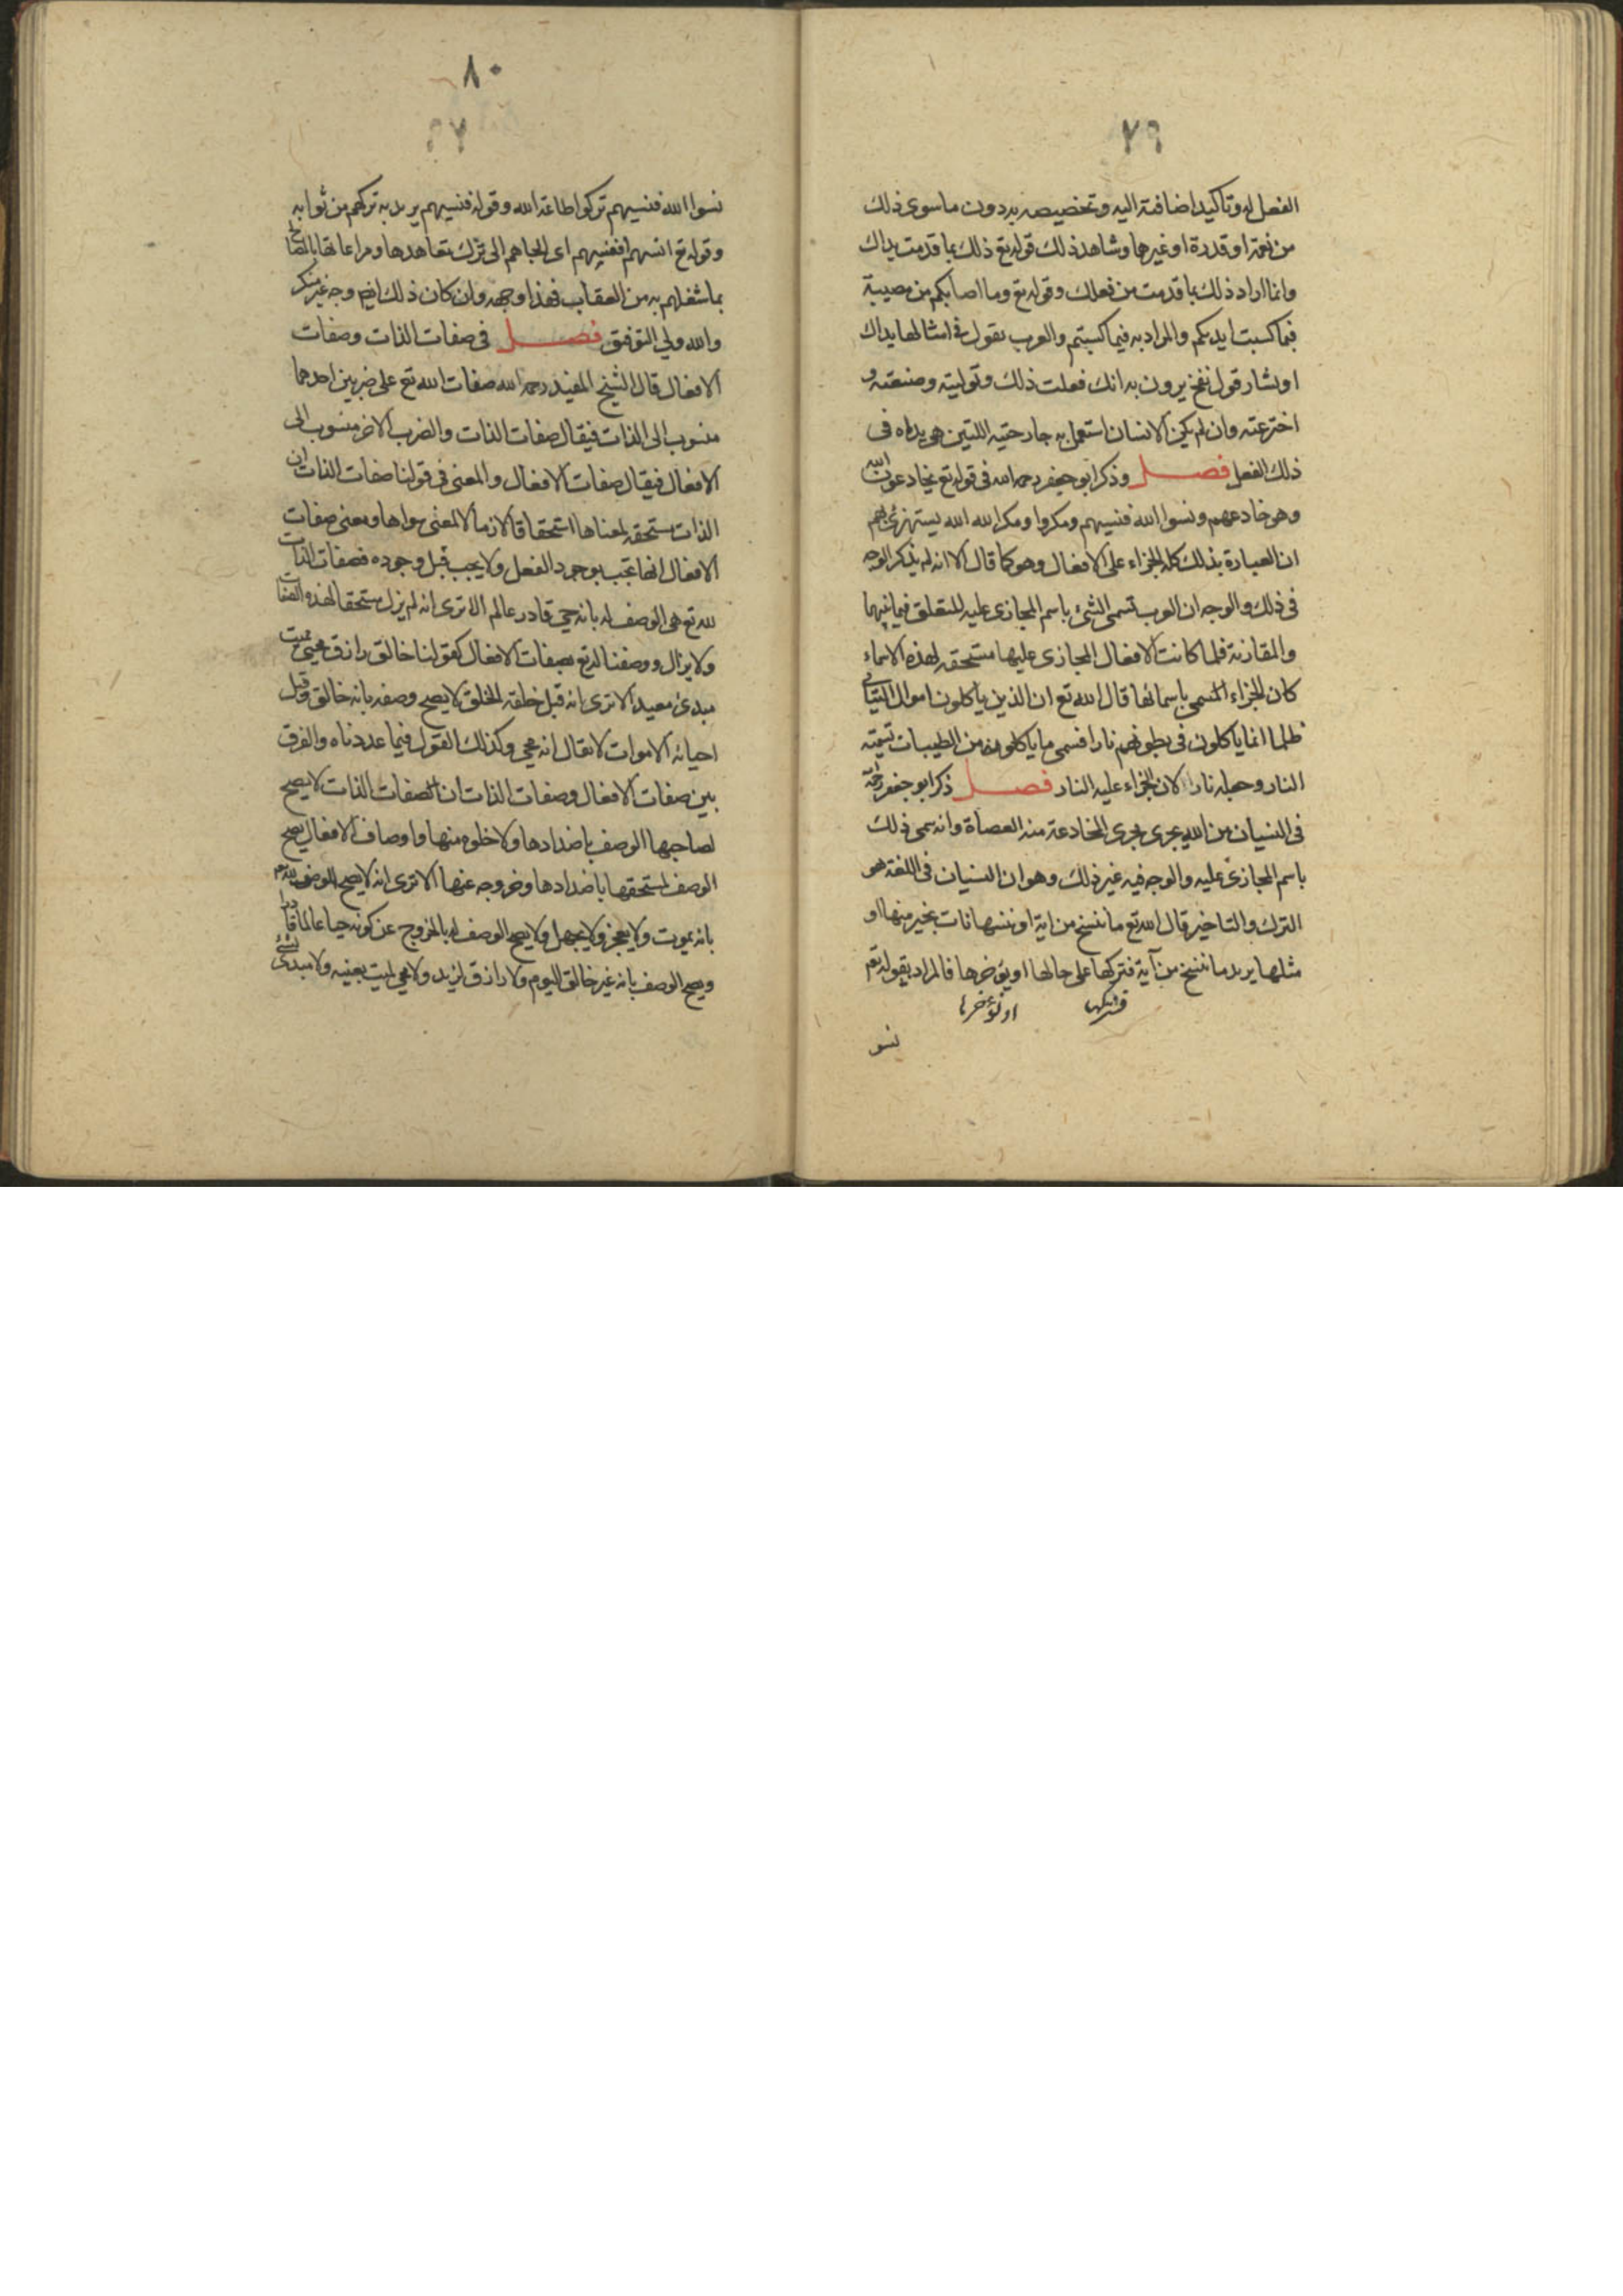 ٧٩
الفعل له وتاكيد اضافته اليه وتخصيصه به دون ماسوى ذلك
من نعمة او قدرة او غيرها وشاهد ذلك قوله تع ذلك بما قدمت يداك
وانما اراد ذلك بما قدمت من فعلك وقوله تع وما اصابكم من مصيبة
فبما كسبت ايديكم والمراد به فيما كسبتم والعرب تقول في امثالها يداك
اوكتا وفوك نفخ يريدون به انك فعلت ذلك وتوليته وصنعته و
اخترعته وان لم يكن الانسان استعمل به جارحتيه اللتين هو يداه فى
ذلك الفعل فصل وذكر ابو جعفر رحمه الله في قوله تع يخادعون الله
وهو خادعهم ونسوا الله فنسيهم ومكروا ومكر الله الله يستهزئ بهم
ان العبارة بذلك كله للجزاء على الافعال وهو كما قال الا انه لم يذكر الوجه
فى ذلك والوجه ان العرب تسمى الشئ باسم المجازى عليه للتعلق فيما بينهما
والمقارنة فلما كانت الافعال المجازى عليها مستحقه لهذه الاسماء
كان الجزاء المسمى باسمائها قال الله تع ان الذين ياكلون اموال اليتامى
ظلما انما ياكلون فى بطونهم نارا فسمى ما ياكلونه من الطيبات تسمته
النار وجعله نارا لان الجزاء عليه النار فصل ذكر ابو جعفر رحمه
فى النسيان من الله يجرى مجرى المخادعة منه العصاة وانه سمى ذلك
باسم المجازى عليه والوجه فيه غير ذلك وهو ان النسيان فى اللغة هو
الترك والتاخير قال الله تع ما ننسخ من اية او ننسها نات بخير منها او
مثلها يريد ما ننسخ من آية فنتركها على حالها او يؤخرها فالمراد بقوله تع
او نؤخرها
نسو
٨٠
نسوا الله فنسيهم تركوا طاعة الله وقوله فنسيهم يريد به تركهم من ثوابه
وقوله تع انسهم انفسهم اى الجاهم الى ترك تعاهدها ومراعاتها بالمصالح
بما شغلهم به من العقاب فهذا وجه وان كان ذلك ايضا وجه غير منكر
والله ولي التوفيق فصل فى صفات الذات وصفات
الافعال قال الشيخ المفيد رحمه الله صفات الله تع على ضربين احدهما
منسوب الى الذات فيقال صفات الذات والضرب الاخر منسوب الى
الافعال فيقال صفات الافعال والمعنى فى قولنا صفات الذات ان
الذات مستحقة لمعناها استحقاقا لازما لا لمعنى سواها ومعنى صفات
الافعال انها تجب بوجود الفعل ولا يجب قبل وجوده فصفات الذات
لله تع هى الوصف له بانه حى قادر عالم الا ترى انه لم يزل مستحقا لهذه الصفات
ولا يزال ووصفنا له تع بصفات الافعال كقولنا خالق رازق محيى مميت
مبدئ معيد الا ترى انه قبل خلقه الخلق لا يصح وصفه بانه خالق وقبل
احيائه الاموات لا يقال انه محيى وكذلك القول فيما عددناه والفرق
بين صفات الافعال وصفات الذات ان صفات الذات لا يصح
لصاحبها الوصف باضدادها ولا خلوه منها واوصاف الافعال يصح
الوصف لمستحقها باضدادها وخروجه عنها الا ترى انه لا يصح الوصف لله تع
بانه يموت ولا يعجز ولا يجهل ولا يصح الوصف له بالخروج عن كونه حيا عالما قادرا
ويصح الوصف بانه غير خالق اليوم ولا رازق لزيد ولا محيى لميت بعينه ولا مبدئ لشئ